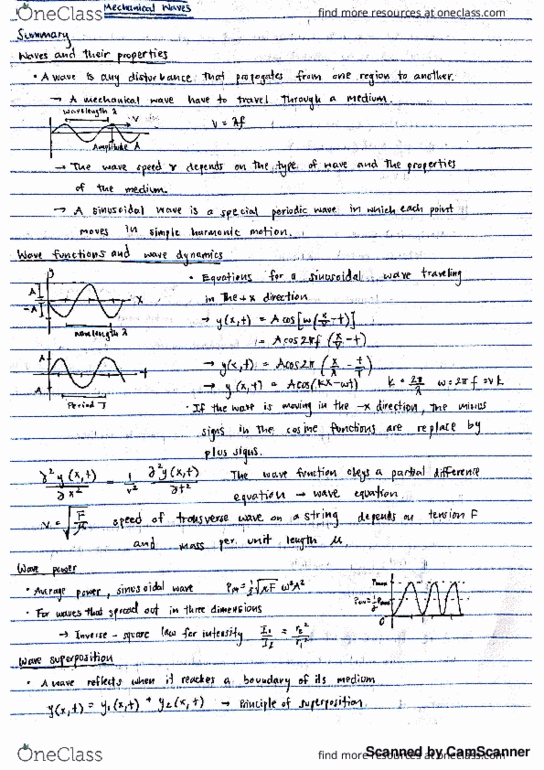 OneClass Mechanical Waves find more resources at oneclass.com
Summary
Waves and their properties
• A wave is any disturbance that propagates from one region to another.
→ A mechanical wave have to travel through a medium.
wavelength λ
v
v = λf
Amplitude A
→ The wave speed v depends on the type of wave and the properties
of the medium.
→ A sinusoidal wave is a special periodic wave in which each point
moves in simple harmonic motion.
Wave functions and wave dynamics
y
A
-A
x
wavelength λ
A
A
t
Period T
• Equations for a sinusoidal wave traveling
in the +x direction
→ y(x,t) = A cos[ω(x/v - t)]
= A cos 2πf (x/v - t)
→ y(x,t) = A cos 2π (x/λ - t/T)
→ y(x,t) = A cos(kx - ωt) k = 2π/λ ω = 2πf = vk
• If the wave is moving in the -x direction, the minus
signs in the cosine functions are replace by
plus signs.
∂²y(x,t)/∂x² = 1/v² ∂²y(x,t)/∂t² The wave function obeys a partial difference
equation → wave equation
v = √F/μ speed of transverse wave on a string depends on tension F
and mass per unit length μ.
Wave power
• Average power, sinusoidal wave Pav = ½√μF ω²A²
• For waves that spread out in three dimensions
→ Inverse-square law for intensity I₁/I₂ = r₂²/r₁²
Pmax
Pav = ½Pmax
0
Wave superposition
• A wave reflects when it reaches a boundary of its medium
y(x,t) = y₁(x,t) + y₂(x,t) → Principle of superposition
OneClass find more resources at oneclass.com
Scanned by CamScanner